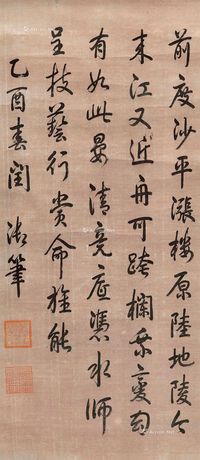 前度沙平漲樓原陸地陵今
来江又近舟可跨欄乘變幻
有如此晏清竟底憑水師
呈技藝行賞命旌能
乙酉春閏御筆